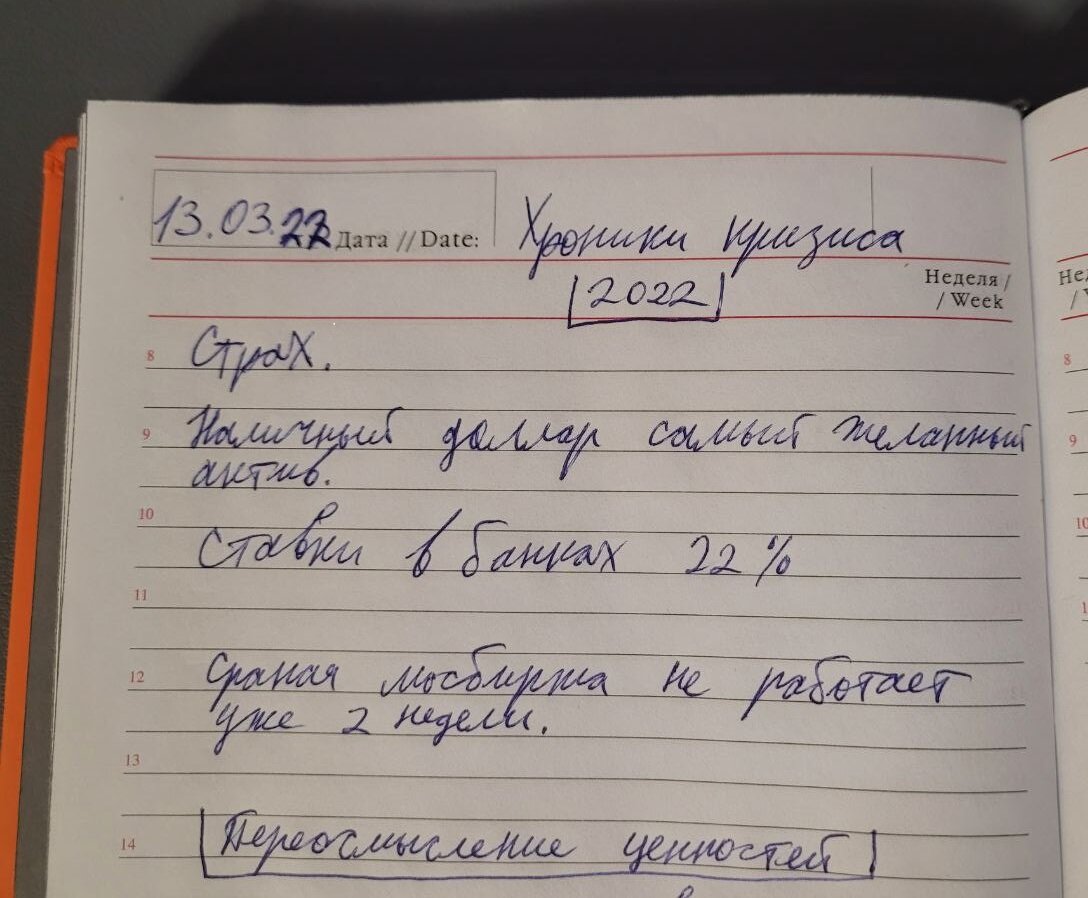 13.03.22 Дата // Date: Хроники кризиса
2022
Неделя /
/ Week
8 Страх.
9 Наличный доллар самый желанный
актив.
10
Ставки в банках 22%
11
12 Сраная мосбиржа не работает
уже 2 недели.
13
14 Переосмысление ценностей
8
9
10